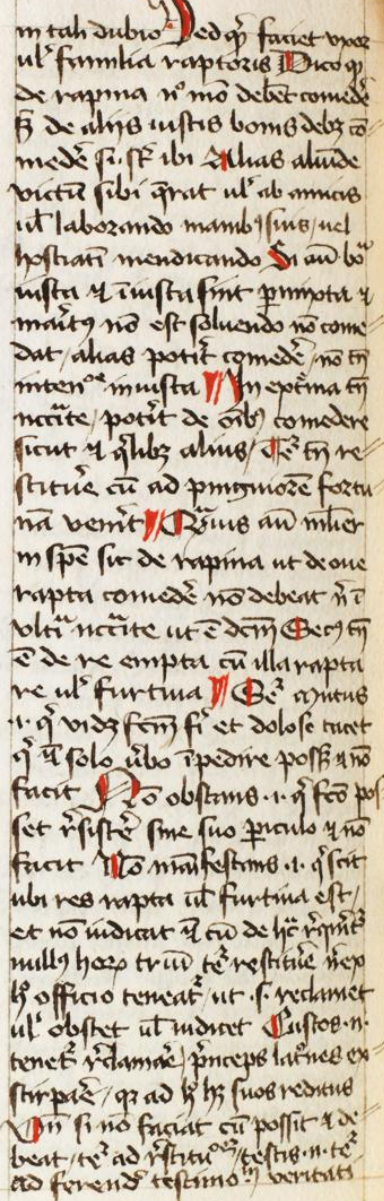 in tali dubio Sed qͥd faciet vxor
ul' familia raptoris Dico qꝫ
de rapina nͦ mͦ debēt comedē
sꝫ de alijs iustis bonis debꝫ cō
medē si sͭ ibi Alias aliūde
victū sibi q̄rat ul' ab amicis
ul' laborando manibꝰ suis / uel
hostiatī mendicando Si aū boᷠ
iusta ⁊ īiusta sint ꝑmixta ⁊
mar̄tꝰ nō est soluendo nō come
dat / alias potit᷑ comedē / nō tn̄
inten̄oᷠe iniusta In ext̄ma tn̄
nc̄cīte / potīt de oībꝰ comedere
sicut ⁊ qͥlibꝫ alius / Teᷓ tn̄ re
stitūe cū ad pinguiorē fortu
nā venīt Qᷓuis aū mlīer
in spē sic de rapina ut de oue
rapta comedē nō debeat nͥ ī
vltīa nc̄cīte ut ē dcm̄ Secꝰ tn̄
ē de re empta cū illa rapta
re ul' furtiua Teᷓ mutus
.i. qͥ vidꝫ fcm̄ fiͥ et dolose tacet
qͥ ī solo ūbo īpedire possꝫ ⁊ nō
facit Nō obstans .i. qͥ fcō pos
set r̄sistē sine suo ꝑiculo ⁊ nō
facit Nō māifestans .i. qͥ scit
ubi res rapta ul' furtiua est /
et nō iudicat
nullꝰ hoꝝ triū teᷓ restitūe nͥ ex
hͦ officio teneat᷑ / ut .s. reclamet
ul' obstet ul' iudicet Custos .n.
tenet᷑ r̄clamāe / p̄nceps lat̄nes ex
stirpāe / qꝛ ad hͦ hꝫ suos reditus
Vn̄ si nō faciat cū possit ⁊ de
beat / teᷓ ad r̄stitūoeꝫ / testis .n. teᷓ
ad ferend̄ testimoīm veritati